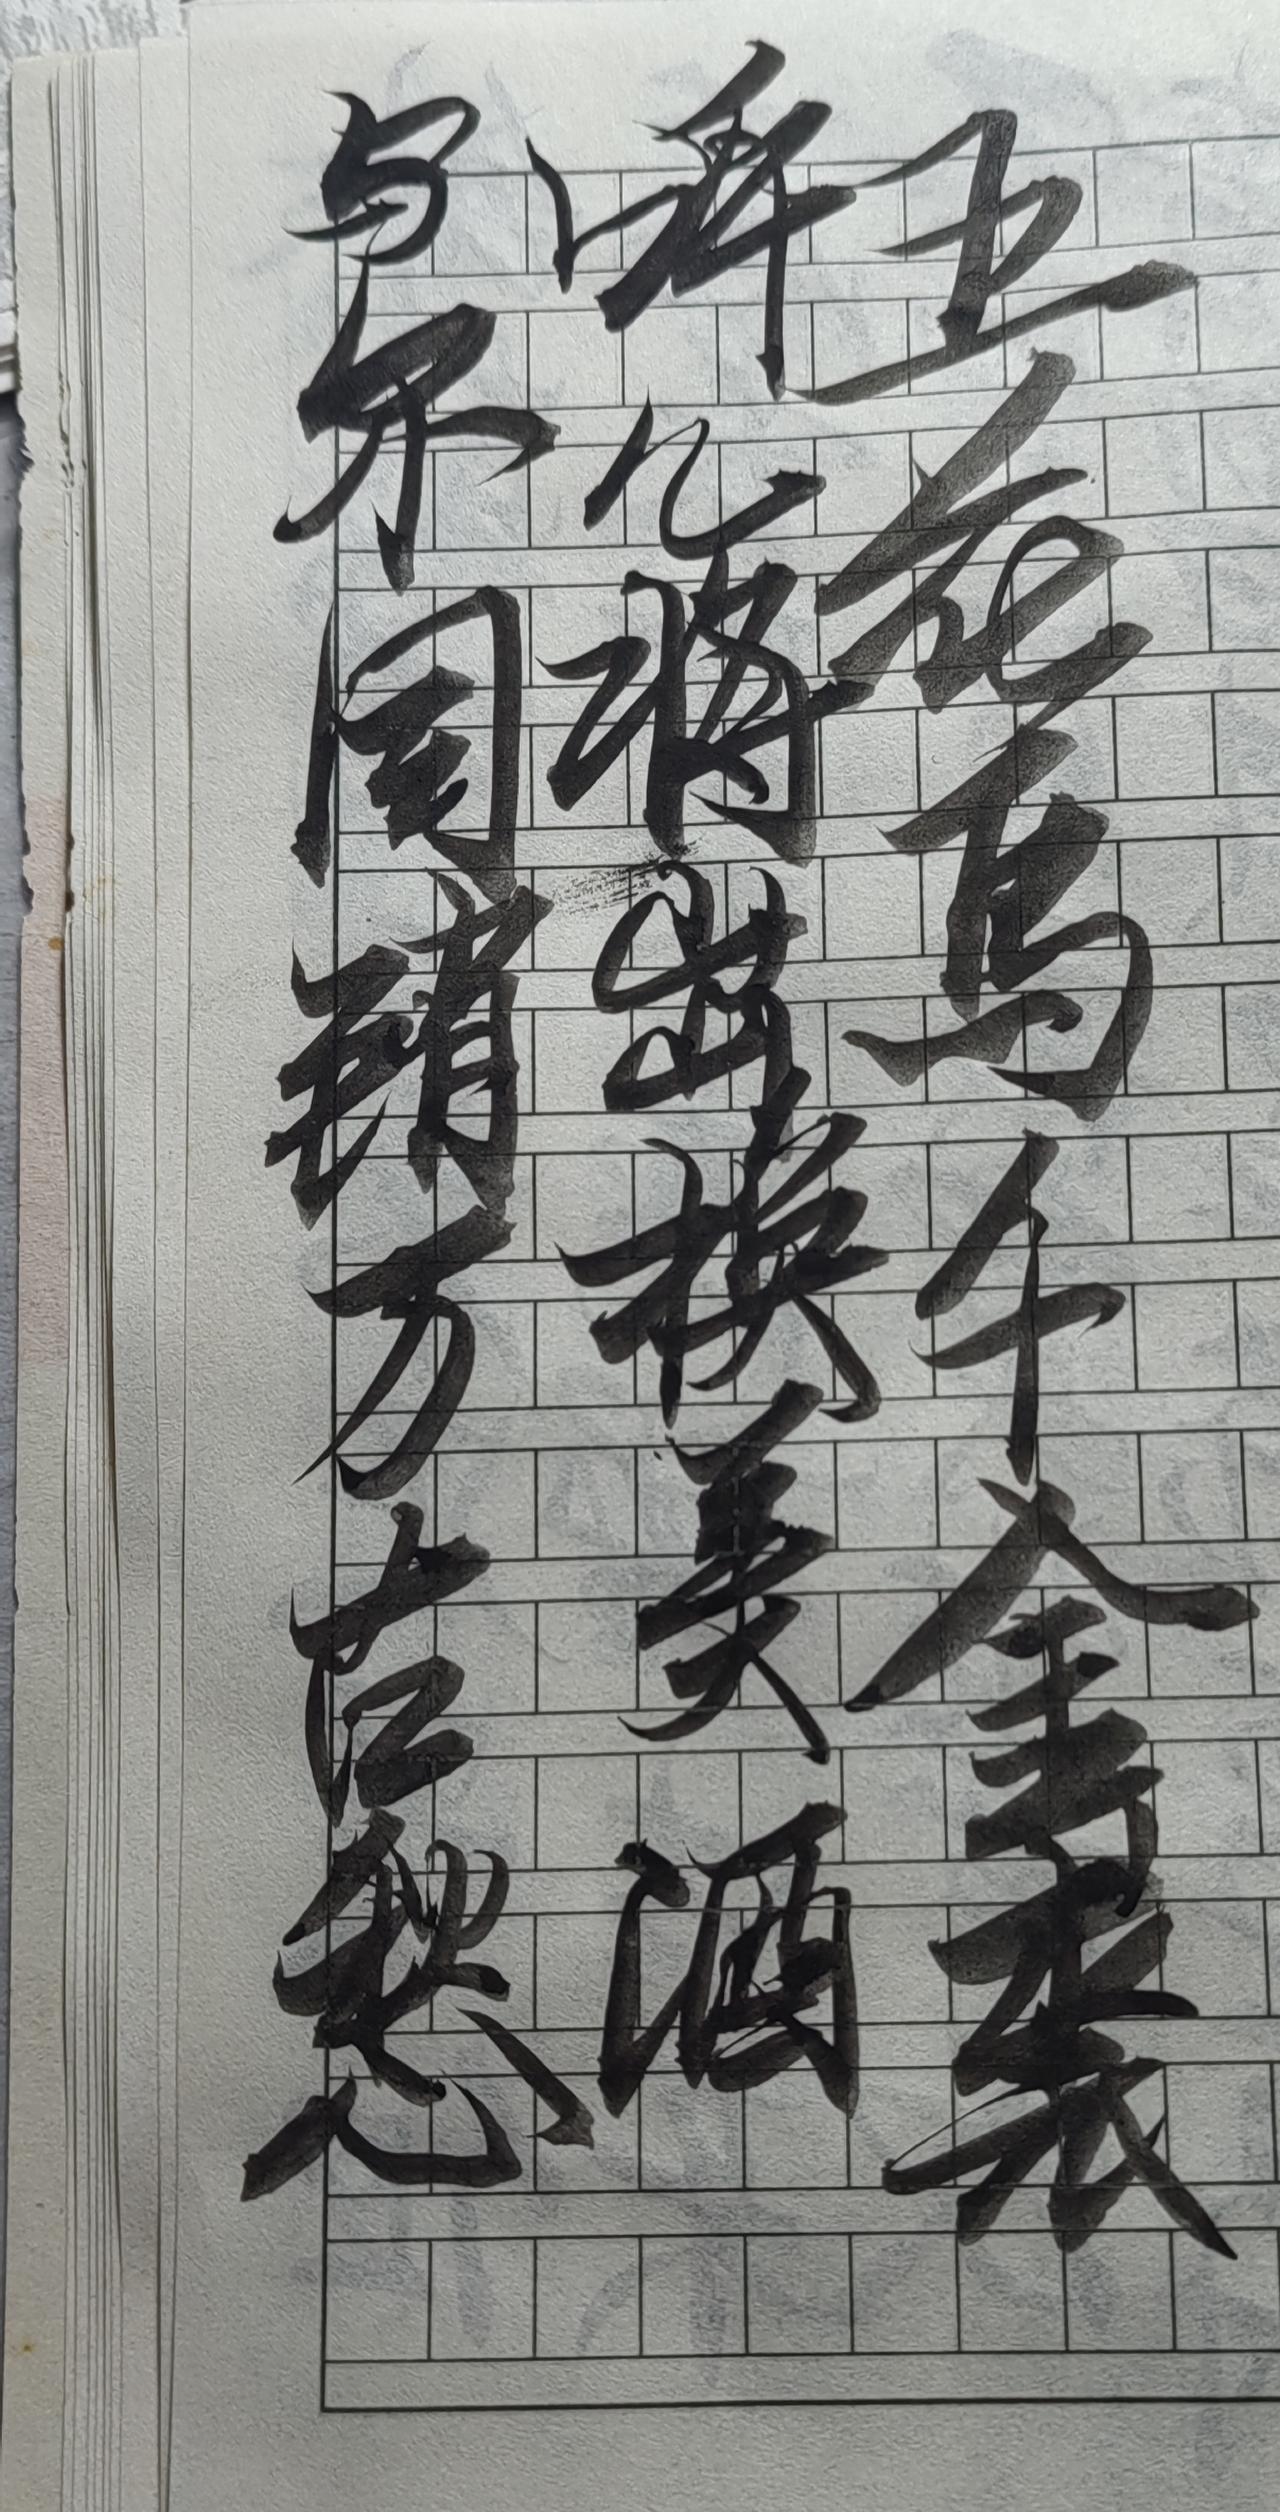 五花马千金裘
呼儿将出换美酒
与尔同销万古愁